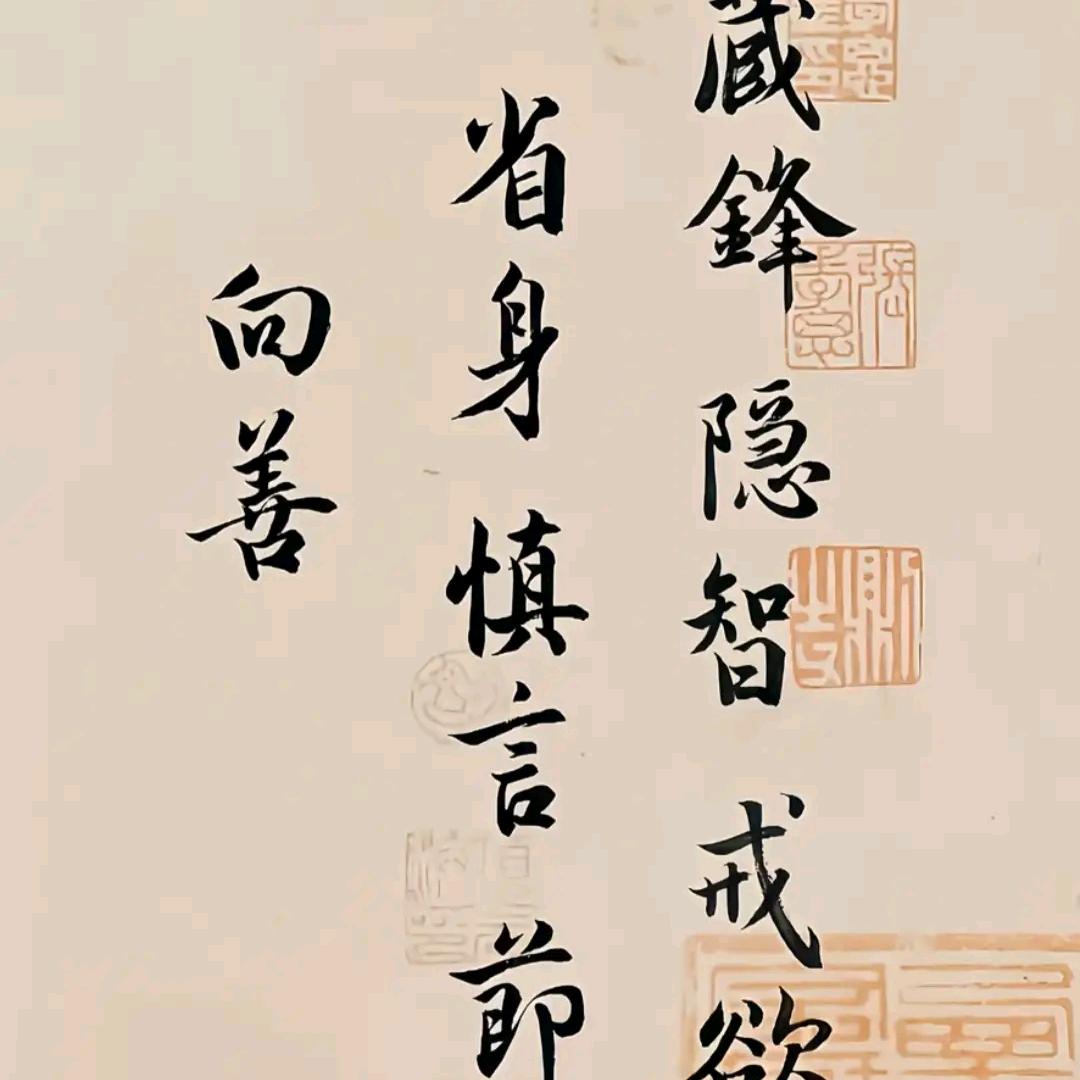 藏鋒隐智戒欲
省身慎言節
向善